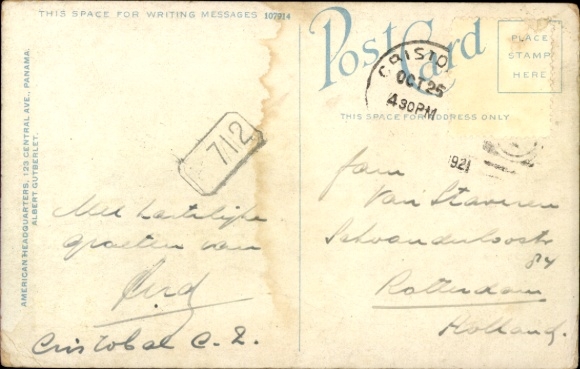 THIS SPACE FOR WRITING MESSAGES 107714
AMERICAN HEADQUARTERS, 123 CENTRAL AVE., PANAMA.
ALBERT GUTBERLET.
712
Met hartelijke
groeten van
Cristobal C. Z.
Post Card
PLACE
STAMP
HERE
CRISTO
OCT 25
4 30PM
1921
THIS SPACE FOR ADDRESS ONLY
Fam
Van Staveren
84
Rotterdam
Holland.